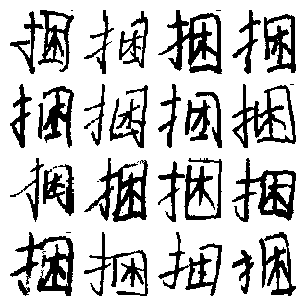 捆捆捆捆
捆捆捆捆
捆捆捆捆
捆捆捆捆